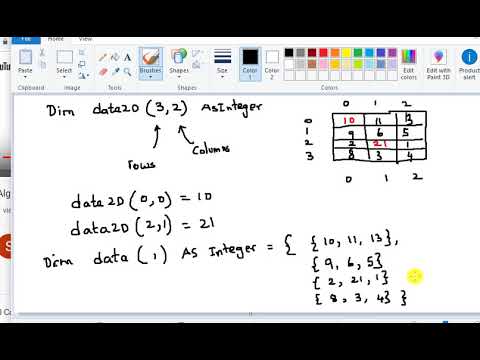 Brushes
Shapes
Size
Color 1
Color 2
Edit colors
Edit with Paint 3D
Product alert
Tools
Shapes
Colors
Dim data2D (3,2) As Integer
rows
Columns
0 1 2
0 10 11 13
1 9 6 5
2 2 21 1
3 8 3 4
0 1 2
data2D (0,0) = 10
data2D (2,1) = 21
Dim data (,) As Integer = { {10, 11, 13},
{9, 6, 5}
{2, 21, 1}
{8, 3, 4} }
Alg
S